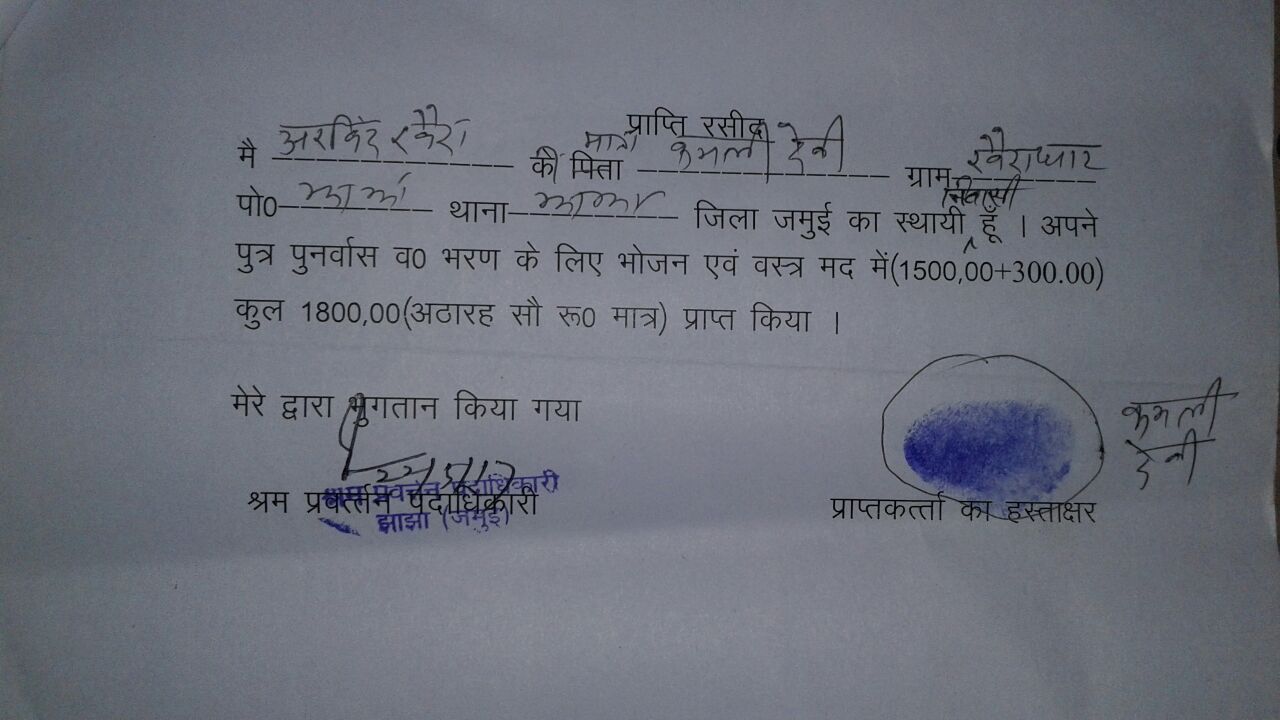 प्राप्ति रसीद
मै अरविंद खैरा की पिता माता कमली देवी ग्राम खैराधार
पो0 झाझा थाना झाझा जिला जमुई का स्थायी निवासी हूँ । अपने
पुत्र पुनर्वास व0 भरण के लिए भोजन एवं वस्त्र मद में(1500,00+300.00)
कुल 1800,00(अठारह सौ रू0 मात्र) प्राप्त किया ।
मेरे द्वारा भुगतान किया गया
कमली
देवी
श्रम प्रवर्त्तन पदाधिकारी
झाझा (जमुई)
श्रम प्रवर्त्तन पदाधिकारी
प्राप्तकर्त्ता का हस्ताक्षर